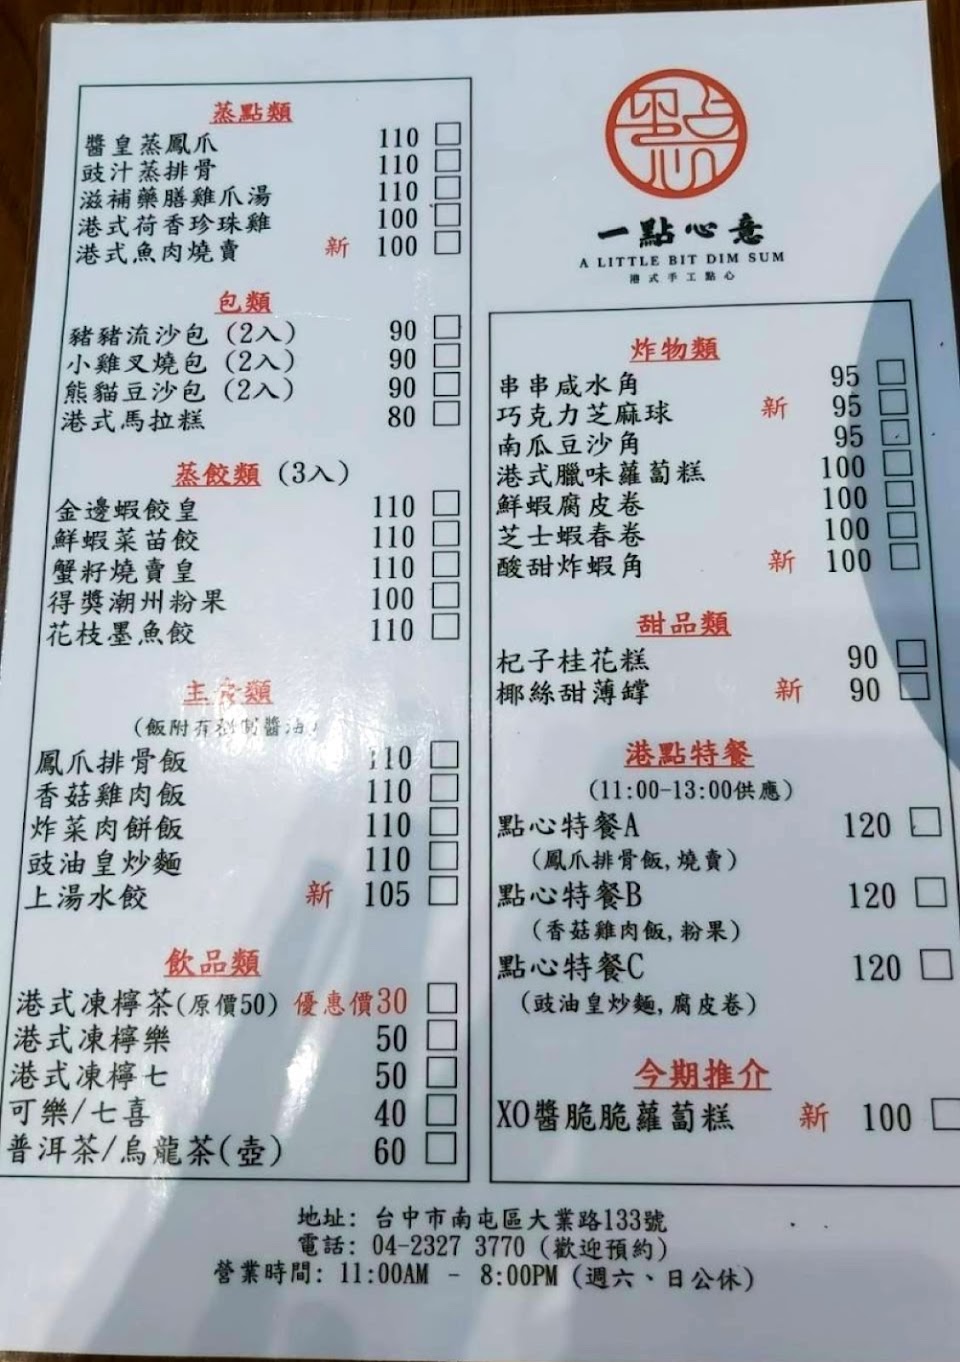 蒸點類
醬皇蒸鳳爪 110
豉汁蒸排骨 110
滋補藥膳雞爪湯 110
港式荷香珍珠雞 100
港式魚肉燒賣 新 100
包類
豬豬流沙包 (2入) 90
小雞叉燒包 (2入) 90
熊貓豆沙包 (2入) 90
港式馬拉糕 80
蒸餃類 (3入)
金邊蝦餃皇 110
鮮蝦菜苗餃 110
蟹籽燒賣皇 110
得獎潮州粉果 100
花枝墨魚餃 110
主食類
(飯附有特制醬油)
鳳爪排骨飯 110
香菇雞肉飯 110
炸菜肉餅飯 110
豉油皇炒麵 110
上湯水餃 新 105
飲品類
港式凍檸茶(原價50) 優惠價30
港式凍檸樂 50
港式凍檸七 50
可樂/七喜 40
普洱茶/烏龍茶(壺) 60
一點心意
A LITTLE BIT DIM SUM
港式手工點心
炸物類
串串咸水角 95
巧克力芝麻球 新 95
南瓜豆沙角 95
港式臘味蘿蔔糕 100
鮮蝦腐皮卷 100
芝士蝦春卷 100
酸甜炸蝦角 新 100
甜品類
杞子桂花糕 90
椰絲甜薄罉 新 90
港點特餐
(11:00-13:00供應)
點心特餐A 120
(鳳爪排骨飯,燒賣)
點心特餐B 120
(香菇雞肉飯,粉果)
點心特餐C 120
(豉油皇炒麵,腐皮卷)
今期推介
XO醬脆脆蘿蔔糕 新 100
地址: 台中市南屯區大業路133號
電話: 04-2327 3770 (歡迎預約)
營業時間: 11:00AM - 8:00PM (週六、日公休)